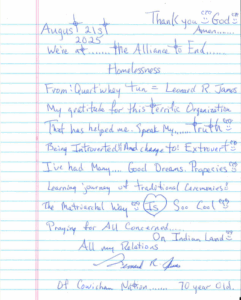 Thank you God
August 21st
Amen......
2025
We're at ....... the Alliance to End.....
Homelessness
From: Quart whey tun = Leonard R James
My gratitude for this terrific Organization
That has helped me. Speak My ...... truth
Being Introverted!! And change to: Extrovert
I've had Many.... Good Dreams. Propecies
Learning journey of traditional Ceremonies!
The Matriarchal Way Is Soo Cool
Praying for All Concerned....
On Indian Land
All my Relations
Leonard R. James
Of Cowichan Nation ....... 70 year old.